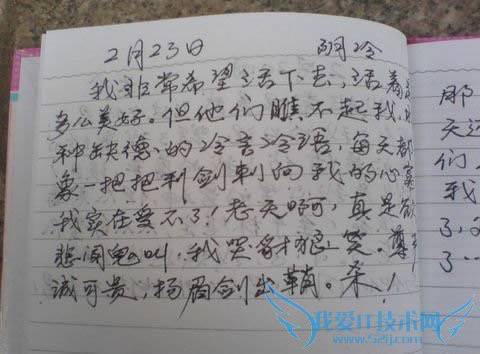 2月23日 阴冷
我非常希望活下去,活着
多么美好。但他们瞧不起我,
种缺德的冷言冷语,每天都
象一把把利剑刺向我的心窝
我实在受不了!老天啊,真是欲
悲闻鬼叫,我哭豺狼笑。
诚可贵,扬眉剑出鞘。杀!
那
天
们
我
了,
了…
我爱IT技术网
www.52ij.com